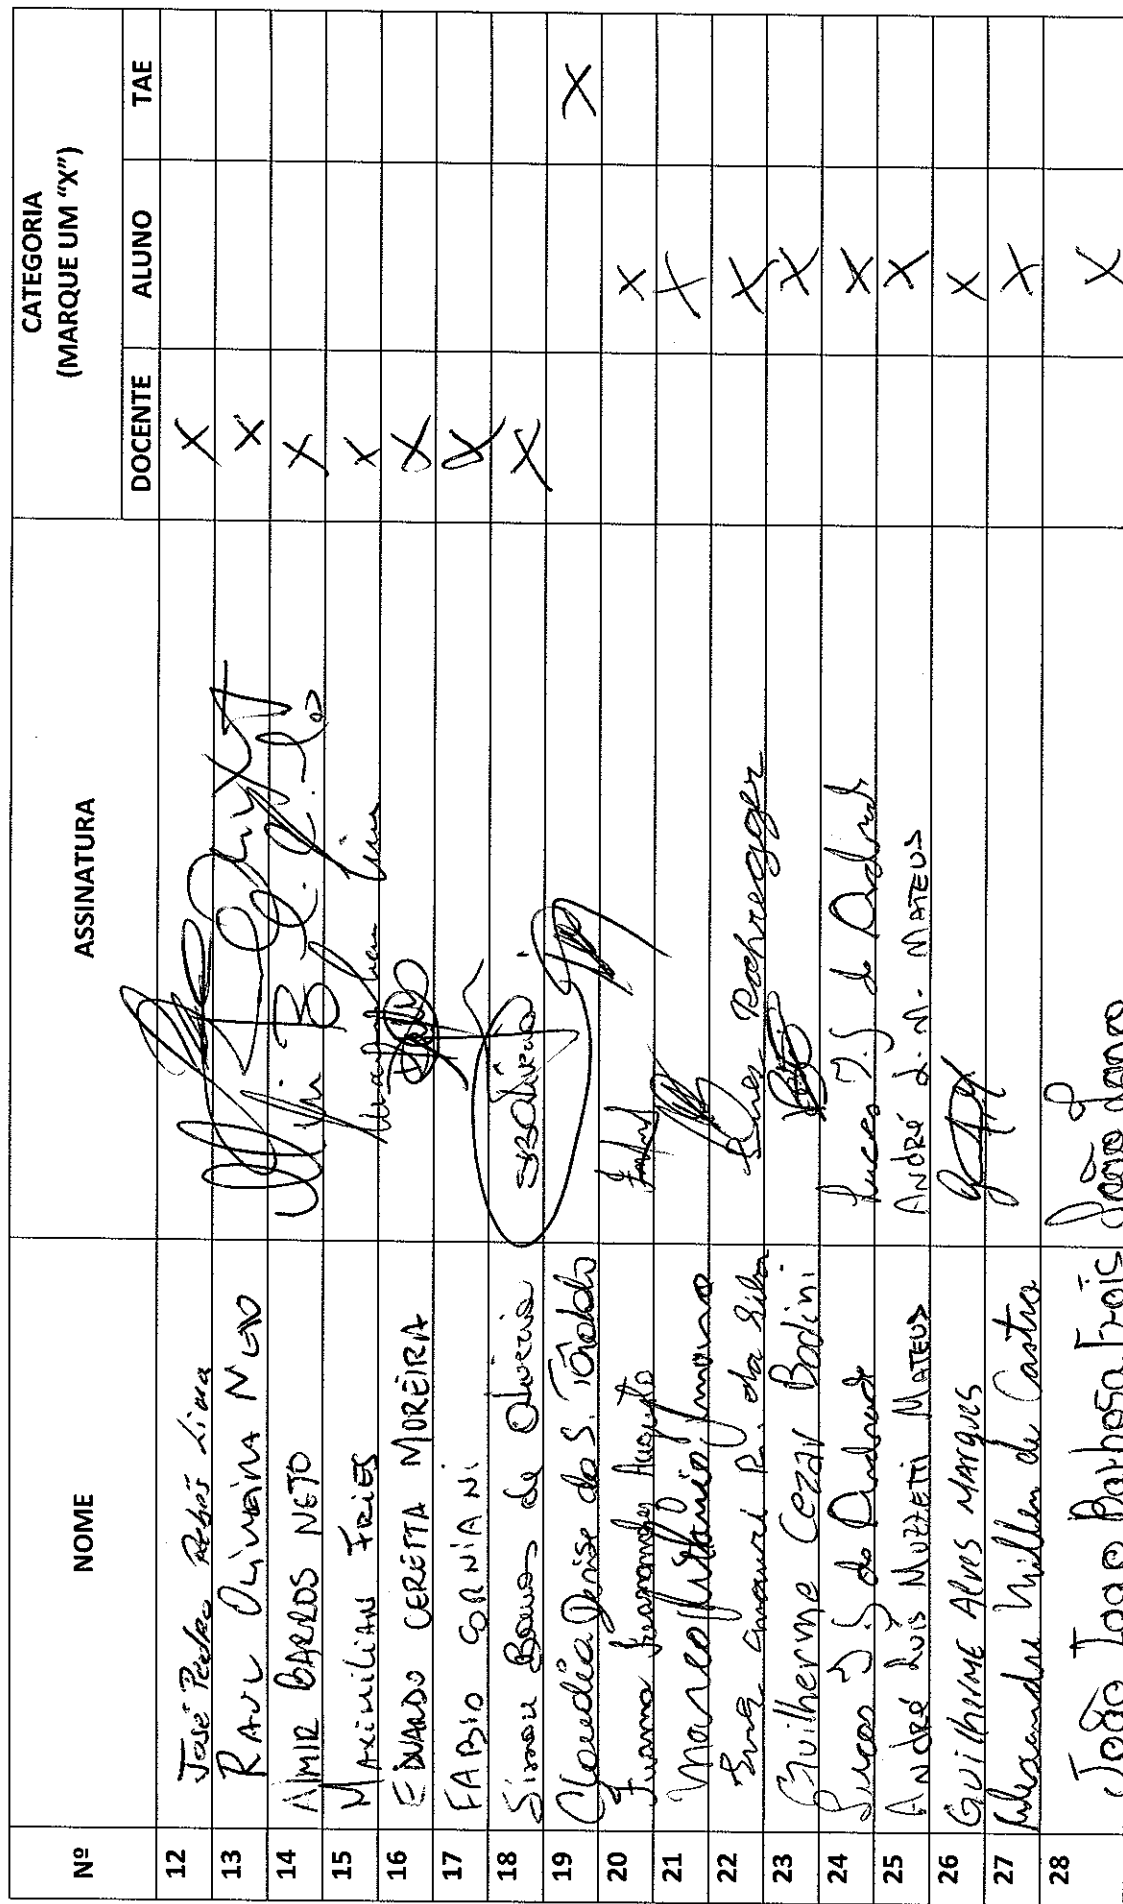 Nº NOME ASSINATURA CATEGORIA (MARQUE UM “X”)
DOCENTE ALUNO TAE
12 José Pedro Rebés Lima X
13 RAUL OLIVEIRA NETO X
14 ALMIR BARROS NETO X
15 MAXIMILIAN FRIES X
16 EDUARDO CERETTA MOREIRA X
17 FABIO X
18 Simone Barros de Oliveira SBOliveira X
19 Claudia Denise da S. Toraldo X
20 Luana Fernandes Augusto X
21 Marco Antonio X
22 da Silva X
23 Guilherme Cezar Bodini X
24 Lucas J. S. de Andrade Lucas J. S. de Andrade X
25 André Luís Muzzetti MATEUS ANDRÉ L. M. MATEUS X
26 GUILHERME ALVES MARQUES X
27 Alexandre Millen de Castro X
28 João Iago Barbosa Frois João X